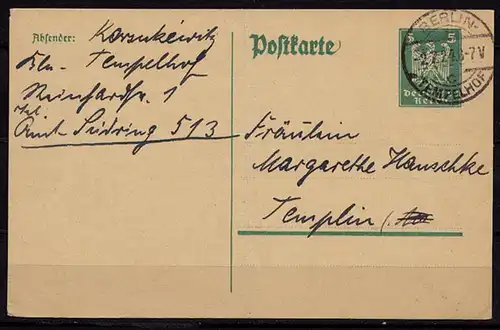 Absender: Korzukéwitz
Bln. Tempelhof
Reinhardstr. 1
Tel.
Amt Südring 513
Postkarte
5 5
Deutsches
Reich
BERLIN-
TEMPELHOF
Fräulein
Margarethe Hanschke
Templin